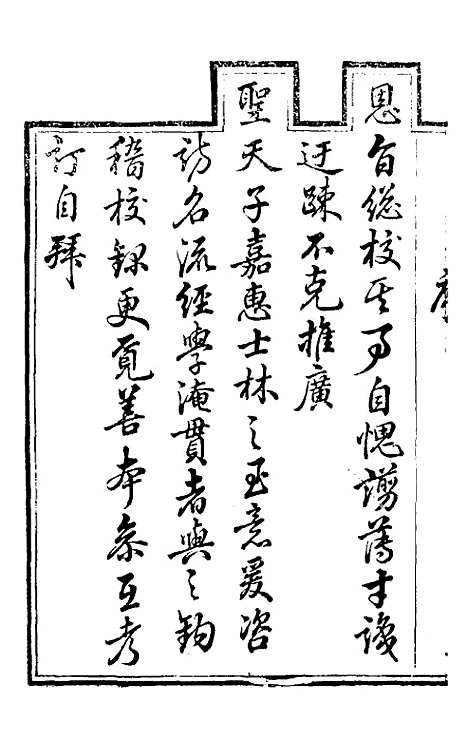 恩旨總校其事自愧謭薄才識
迂疎不克推廣
聖天子嘉惠士林之至意爰咨
訪名流經學淹貫者與之鉤
稽校錄更覓善本叅互考
訂自拜